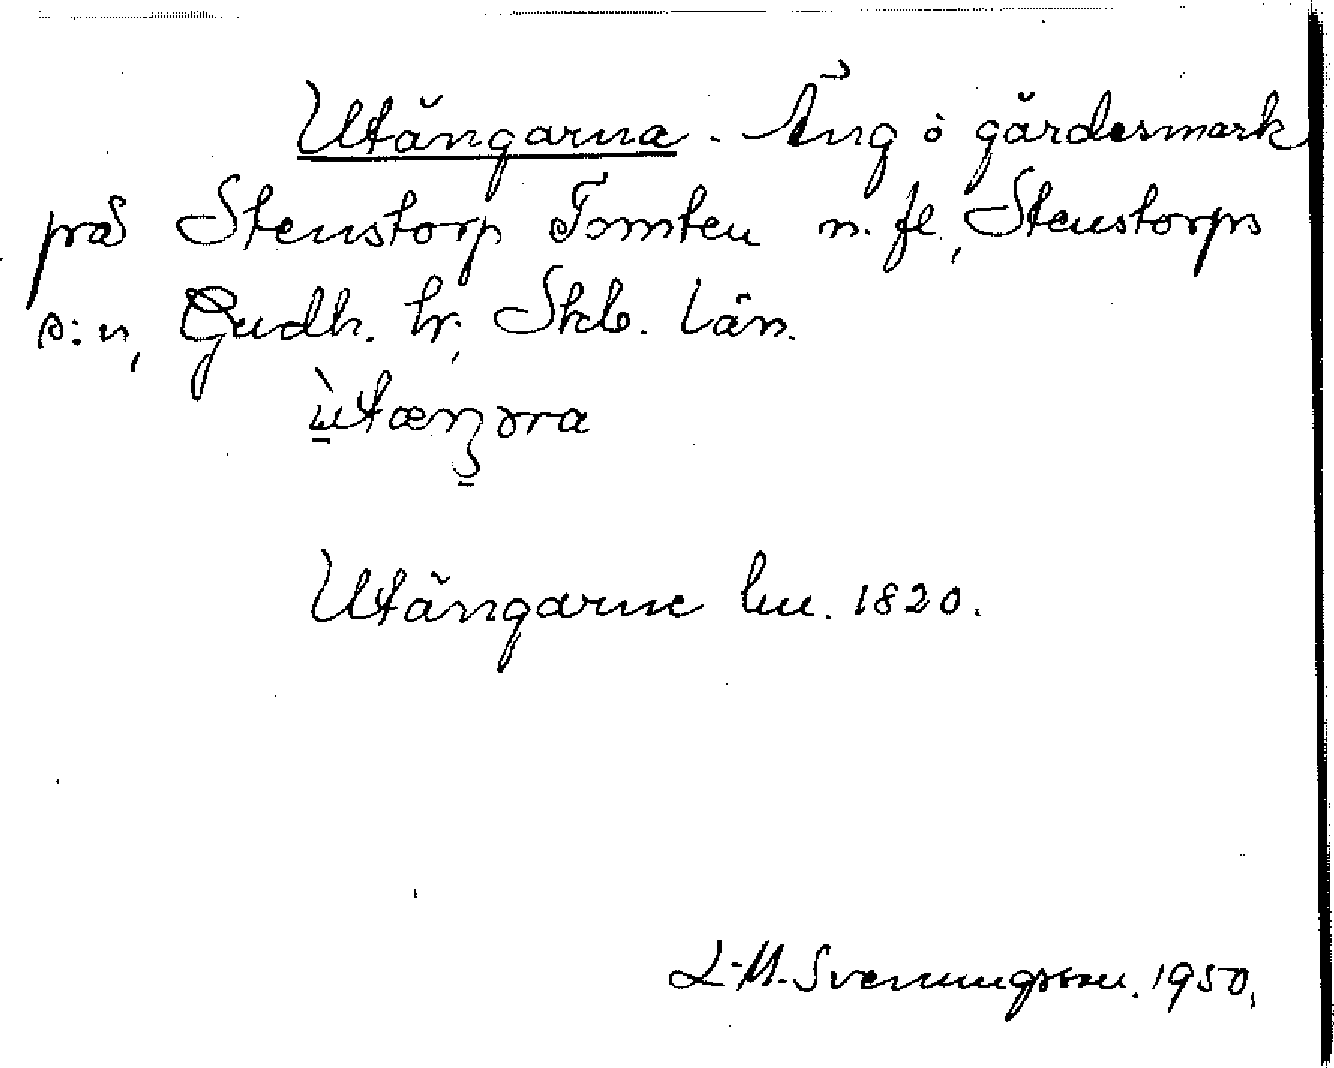 Utängarna. Äng o gärdesmark
på Stenstorp Tomten m. fl., Stenstorps
s:n, Gudh. hr, Skb. län.
ùtæŋəra
Utängarne lm. 1820.
L-M. Svenungsson. 1950.